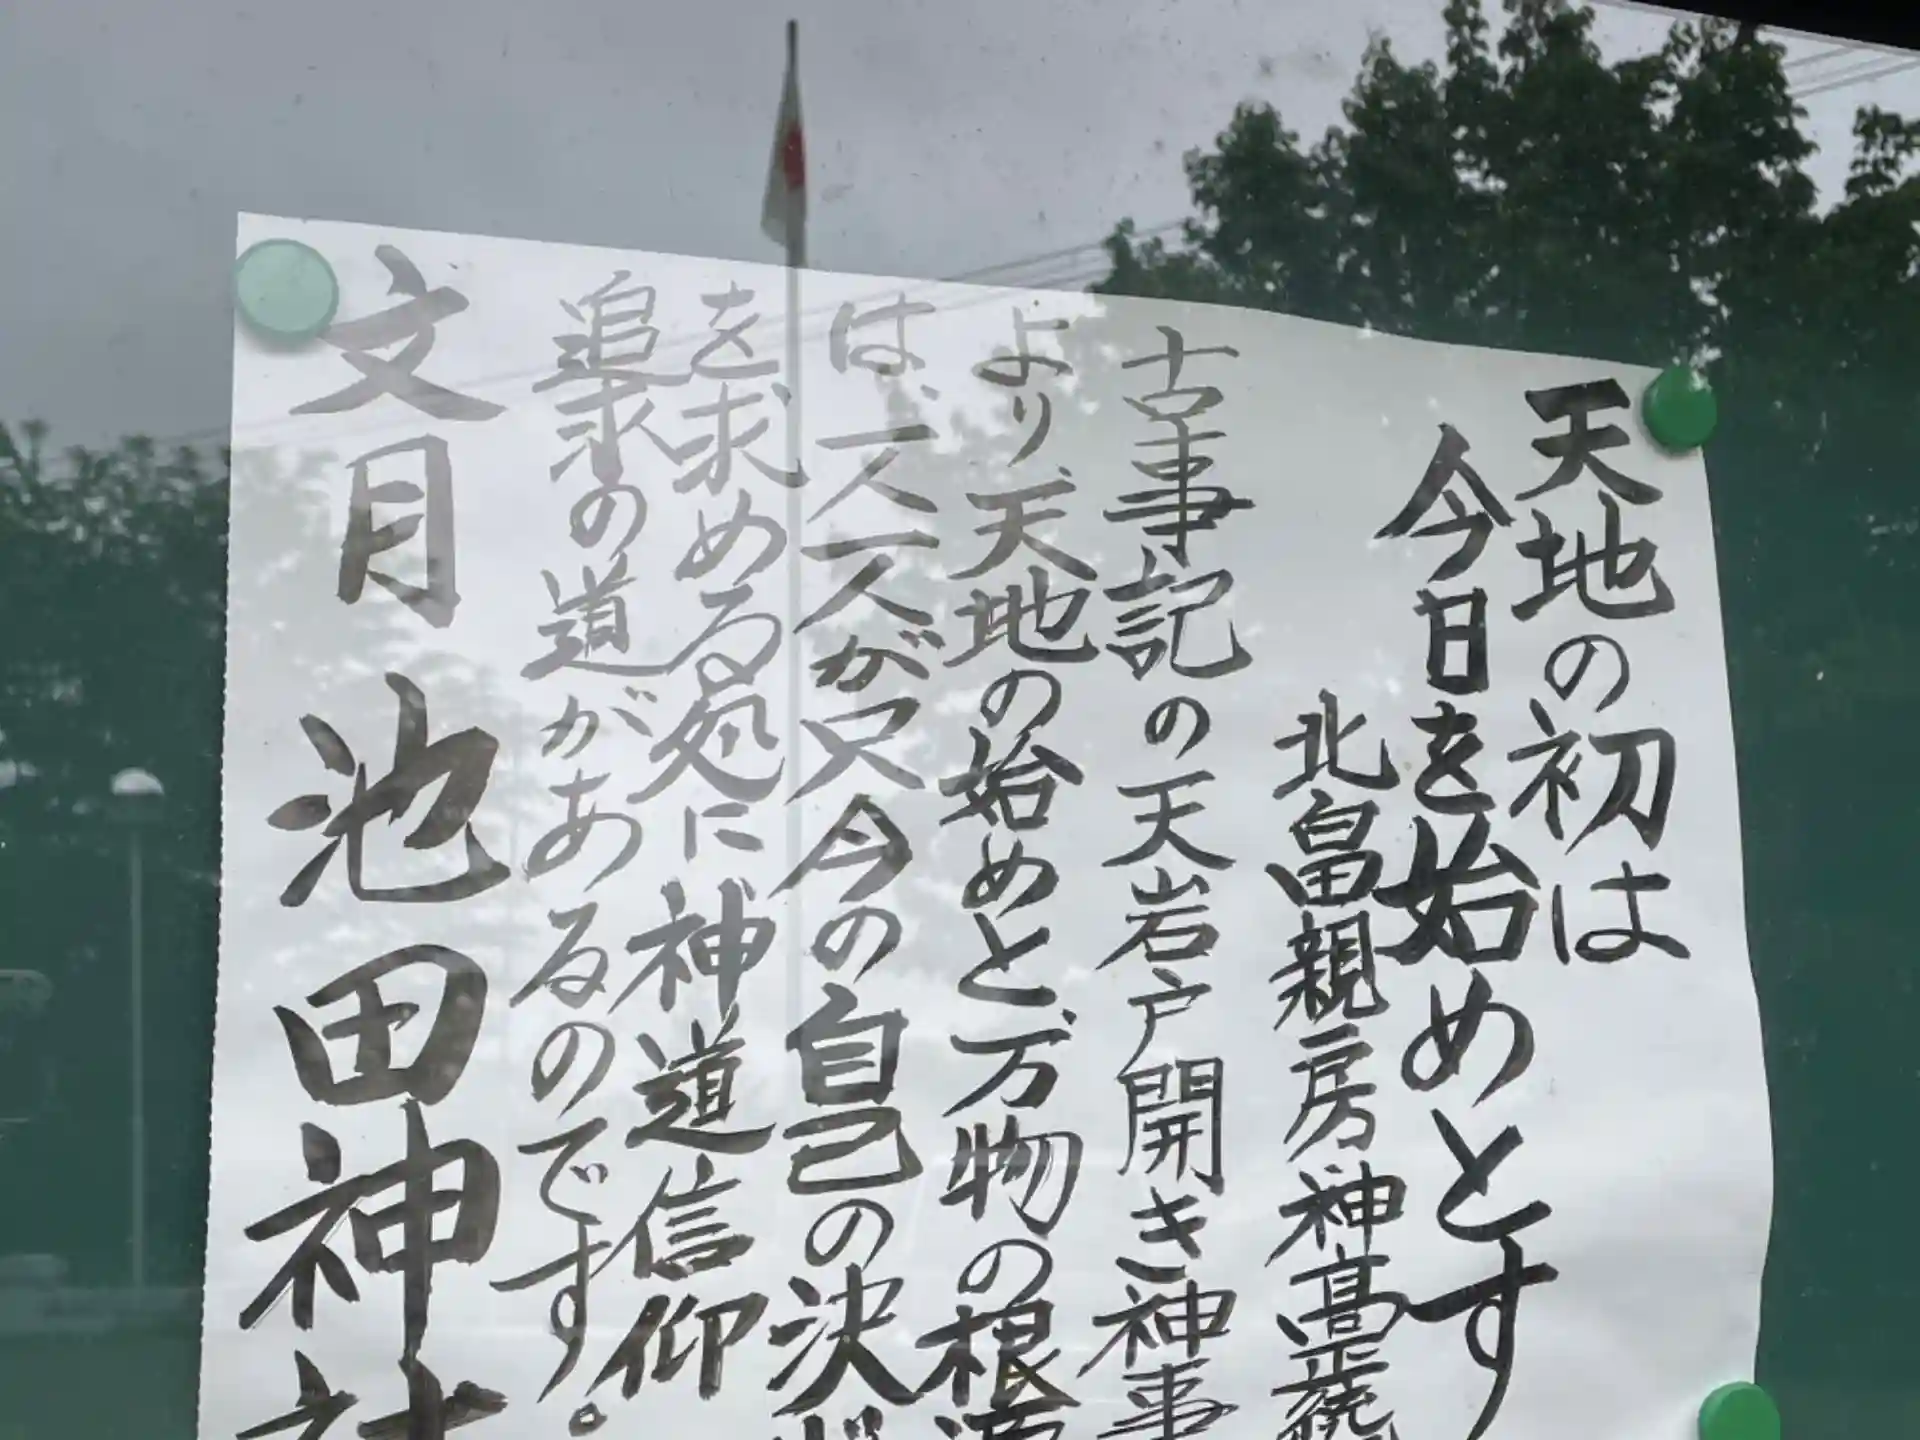 天地の初は
今日を始めとす
北畠親房神髙正統
古事記の天岩戸開き神事
より、天地の始めと万物の根源
は、一人一人が只今の自己の決
を求める処に神道信仰
追求の道があるのです。
文月 池田神社